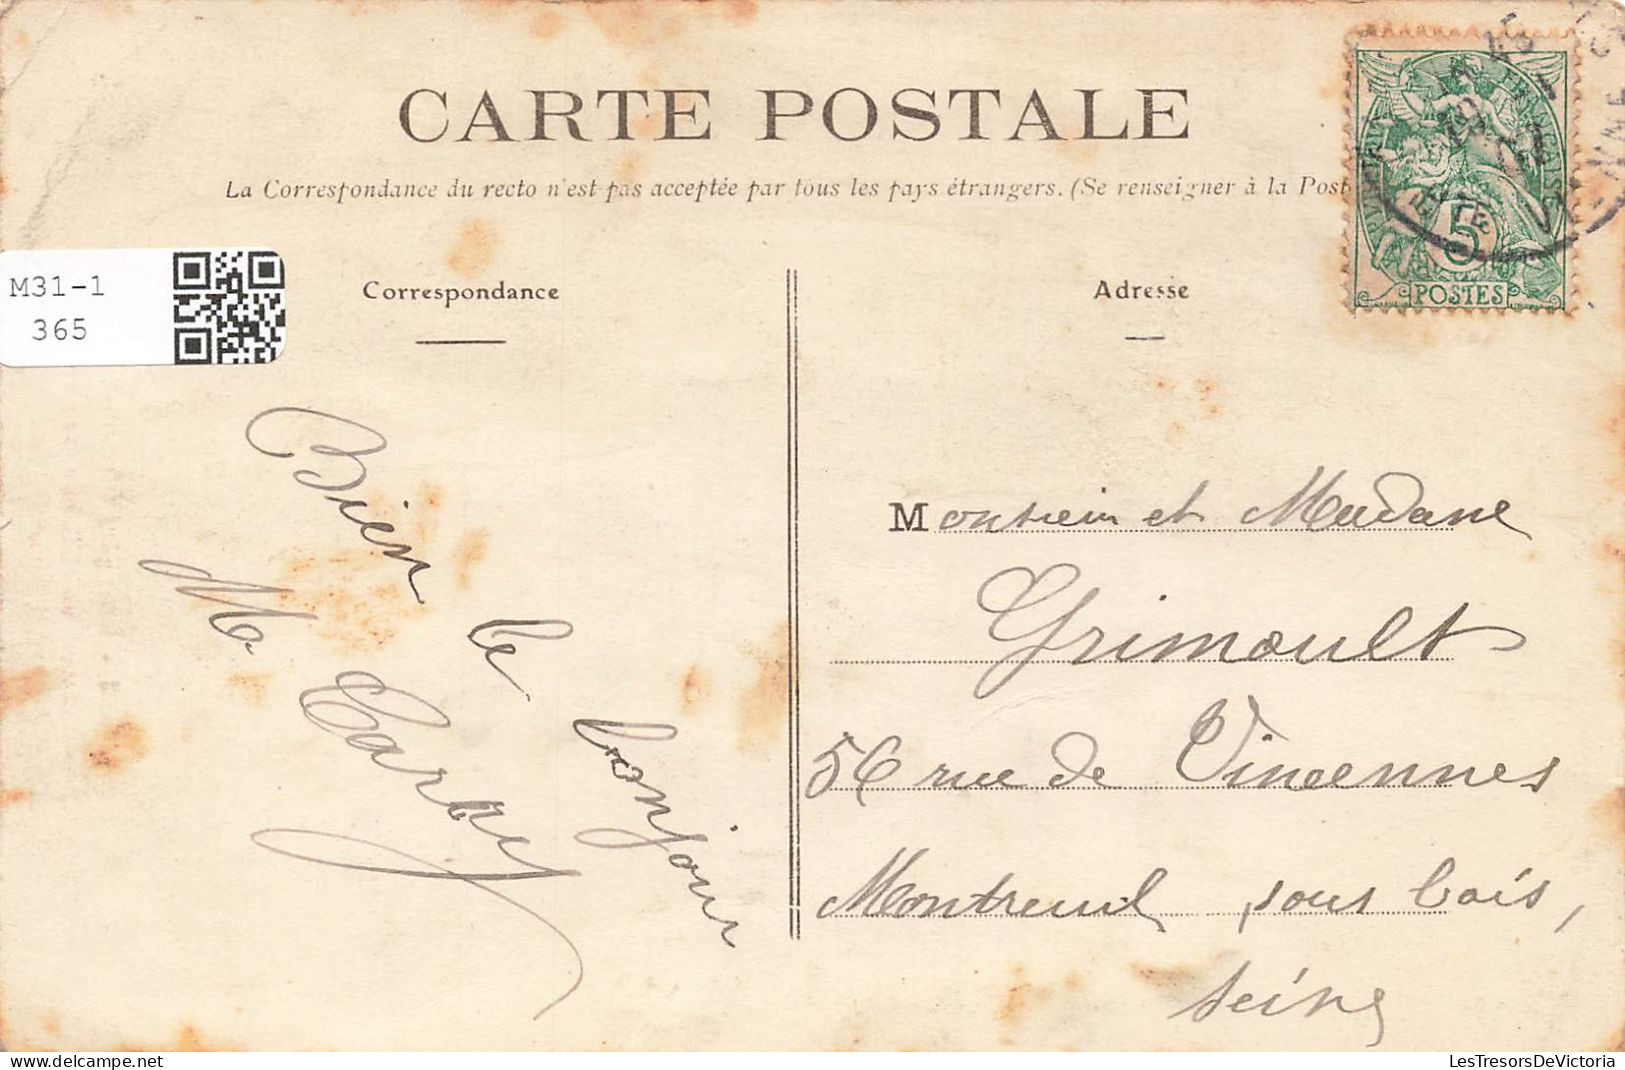 CARTE POSTALE
La Correspondance du recto n'est pas acceptée par tous les pays étrangers. (Se renseigner à la Post
M31-1
365
Correspondance
Adresse
5
POSTES
Bien le bonjour
M
Monsieur et Madame
Grimoult
56 rue de Vincennes
Montreuil sous bois,
Seine
LesTresorsDeVictoria